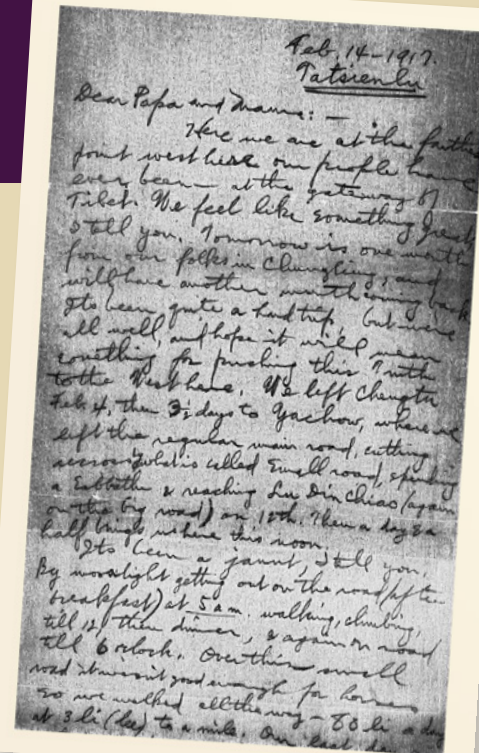 Feb, 14-1917.
Tatsienlu
Dear Papa and Mama: —
Here we are at the farthe
point west here our people have
ever been — at the gateway of
Tibet. We feel like something great
I tell you. Tomorrow is one month
from our folks in Chungking, and
will have another month coming back
Its been quite a hard trip, but we're
all well, and hope it will mean
something for pushing this Truth
to the West here. We left Chengtu
Feb. 4, then 3½ days to Yachow, where we
left the regular main road, cutting
across what is called Small road, spending
a Sabbath & reaching Lu Din Chiao (again
on the big road) on 12th. Then a day & a
half brings us here this noon.
Its been a jaunt, I tell you,
By moonlight getting out on the road (after
breakfast) at 5 a m. walking, climbing,
till 12, then dinner, & again on road
till 6 oclock. Over this small
road it wasn't good enough for horses
so we walked all the way — 80 li a day
at 3 li (lee) to a mile. Our